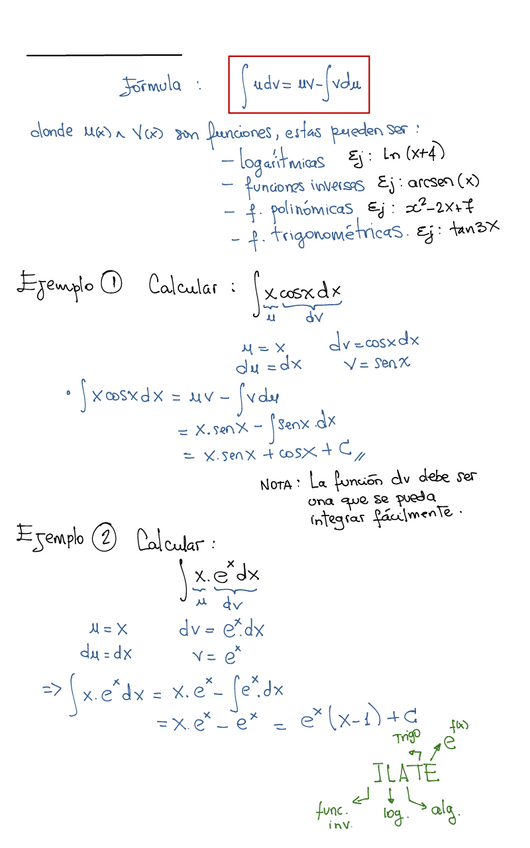 Fórmula : ∫udv = uv - ∫vdu
donde u(x) ∧ v(x) son funciones, estas pueden ser :
- logarítmicas Ej: Ln (x+4)
- funciones inversas Ej: arcsen (x)
- f. polinómicas Ej: x²-2x+7
- f. trigonométricas. Ej: tan3x
Ejemplo ① Calcular : ∫x cosx dx
u dv
u = x dv = cosx dx
du = dx v = senx
• ∫x cosx dx = uv - ∫vdu
= x.senx - ∫senx.dx
= x.senx + cosx + C //
NOTA: La función dv debe ser
una que se pueda
integrar fácilmente.
Ejemplo ② Calcular :
∫x.eˣdx
u dv
u = x dv = eˣ.dx
du = dx v = eˣ
=> ∫x.eˣdx = x.eˣ - ∫eˣ.dx
= x.eˣ - eˣ = eˣ(x-1) + C
Trigo e^f(x)
ILATE
func. inv. log. alg.